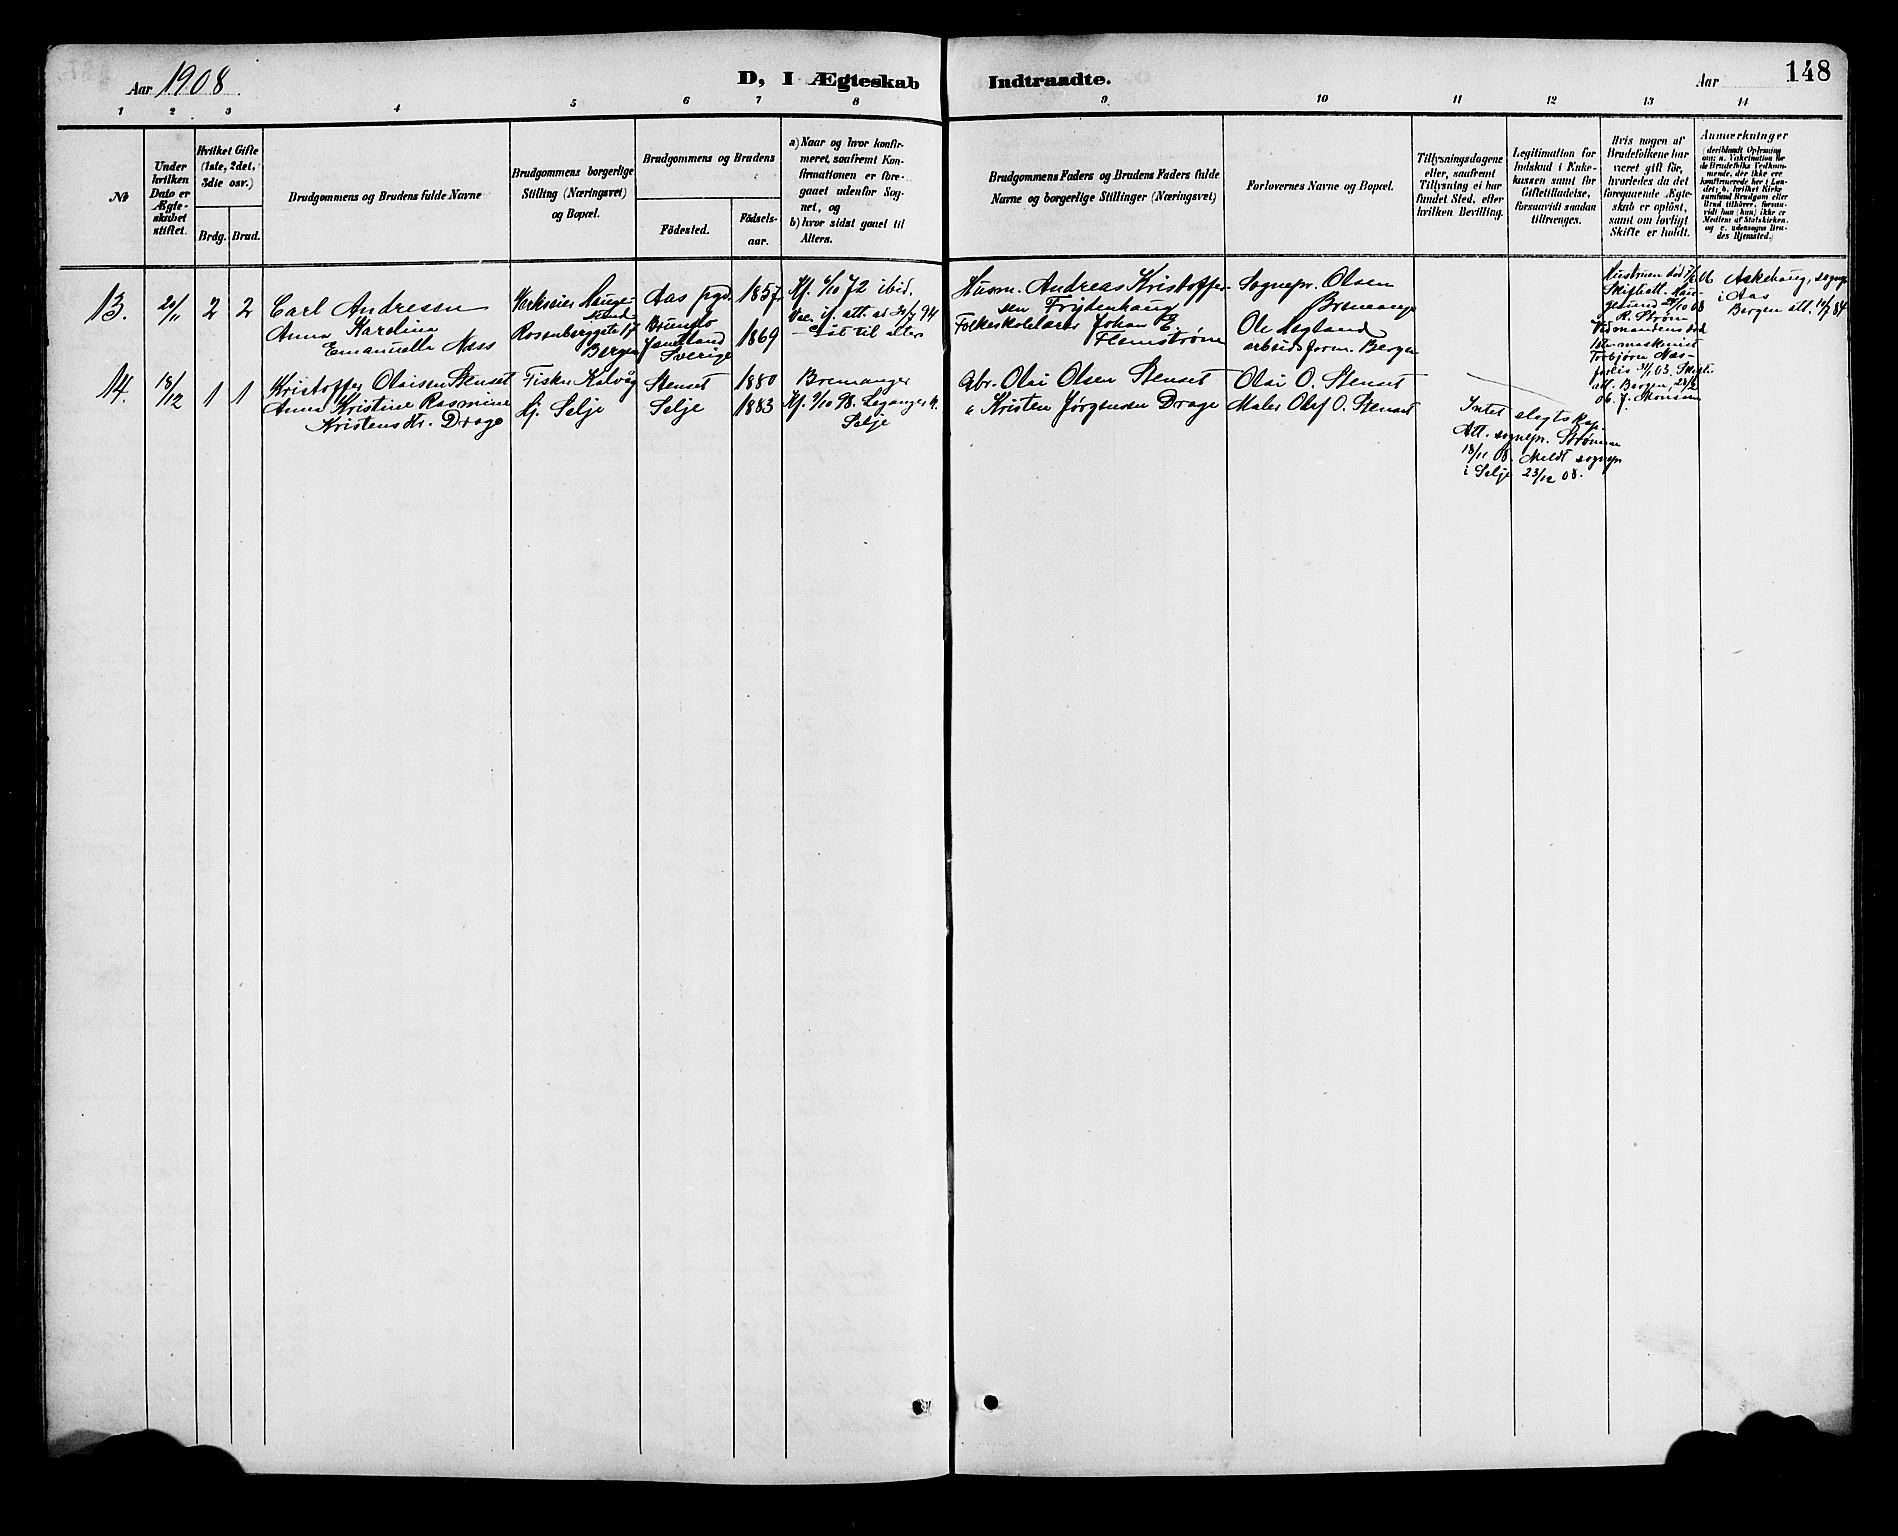 Aar 1908.
D, I Ægteskab Indtraadte.
Aar
148
1 2 3 4 5 6 7 8 9 10 11 12 13 14
No
Under hvilken Dato er Ægteskabet stiftet.
Hvilket Gifte (1ste, 2det, 3die osv.)
Brdg. Brud.
Brudgommens og Brudens fulde Navne
Brudgommens borgerlige Stilling (Næringsvei) og Bopæl.
Brudgommens og Brudens
Födested.
Födsels-aar.
a) Naar og hvor konfirmeret, saafremt Konfirmationen er foregaaet udenfor Sognet, og
b) hvor sidst gaaet til Alters.
Brudgommens Faders og Brudens Faders fulde Navne og borgerlige Stillinger (Næringsvei)
Forlovernes Navne og Bopæl.
Tillysningsdagene eller, saafremt Tillysning ei har fundet Sted, efter hvilken Bevilling.
Legitimation for Indskud i Enkekassen samt for Giftetilladelse, forsaavidt saadan tiltrænges.
Hvis nogen af Brudefolkene har været gift för, hvorledes da det foregaaende Ægteskab er oplöst, samt om lovligt Skifte er holdt.
Anmærkninger
(deriblandt Oplysning om: a. Vakcination for de Brudefolks Vedkommende, der ikke ere konfirmerede her i Landet; b. hvilket Kirkesamfund Brudgom eller Brud tilhører, forsaavidt han (hun) ikke er Medlem af Statskirken, og c. udensogns Brudes Hjemsted.)
13. 20/11 2 2
Carl Andressen
Anna Karolina
Emanuella Næss
Verkseier Haugesund
Rosenberggate 17
Bergen
Aas prgd.
Brunflo
Jämtland
Sverige
1857
1869
Kf. 6/10 72 ibid.
Vac. if. att. as 31/7 94
Husm. Andreas Kristoffersen Frijtenhaug
Folkeskolelærer Johan E. Flemstrøm
Sognepr. Olsen
Bremanger
Ole Aagtand
arbeidsform. Bergen
Hustruen död 7/2 06
Skifteatt. Haugesund 24/10 08
R. Strøm
1ste maskinist
Torbjørn Aas-
att. Bergen, 23/2
06. J. Monsen
Askehaug, sognepr
i Aas
Bergen att. 12/7 84
14. 18/12 1 1
Kristoffer Olaisen Stenset
Anna Kristine Rasmine
Kristensdtr. Drage
Fisker Kalvåg
Hj. Selje
Stenset
Selje
1880
1883
Bremanger
Kf. 2/10 98. Leganger k.
Selje
Gbr. Olai Olsen Stenset
" Kristen Jørgensen Drage
Olai O. Stenset
Maler Olaf O. Stenset
Intet slegtskap.
Att. sognepr. Strømme
18/11 08. Meldt sognepr
i Selje 23/12 08.